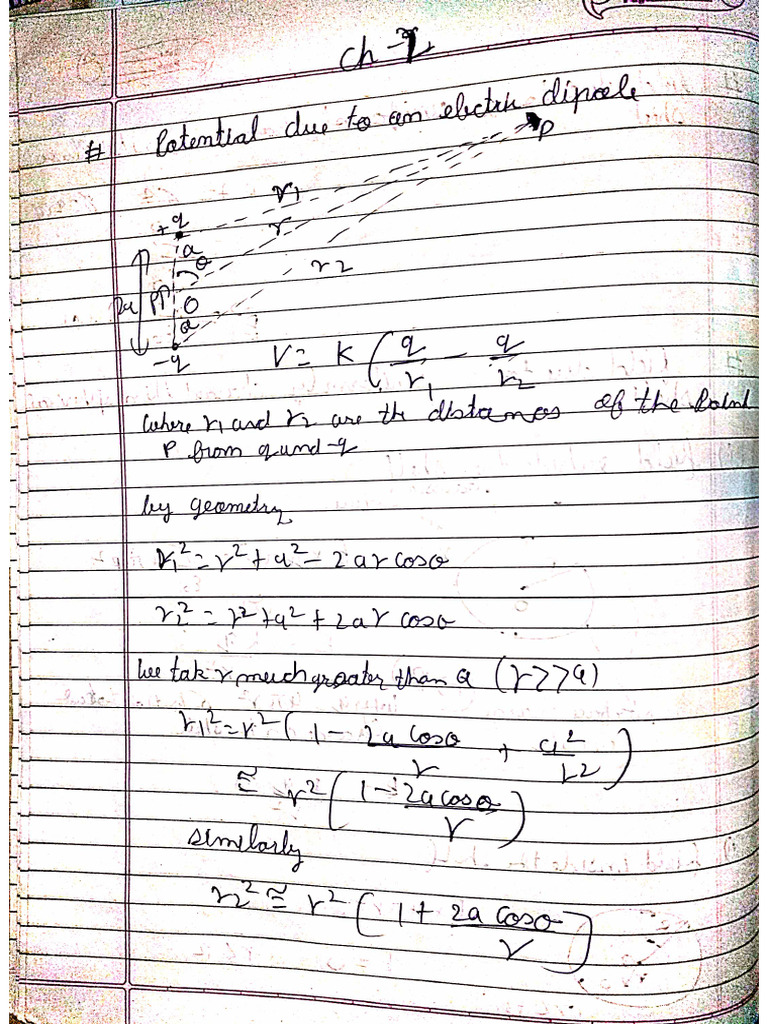 ch - 2
# Potential due to an electric dipole
P
r1
+q
r
a
θ
r2
2a P↑ O
a
-q
V = K ( q/r1 - q/r2
where r1 and r2 are the distances of the point
P from q and -q
by geometry
r1² = r² + a² - 2ar cosθ
r2² = r² + a² + 2ar cosθ
We tak r much greater than a (r >> a)
r1² = r² ( 1 - 2a cosθ/r + a²/r2 )
≅ r² ( 1 - 2a cosθ/r )
similarly
r2² ≅ r² ( 1 + 2a cosθ/r )